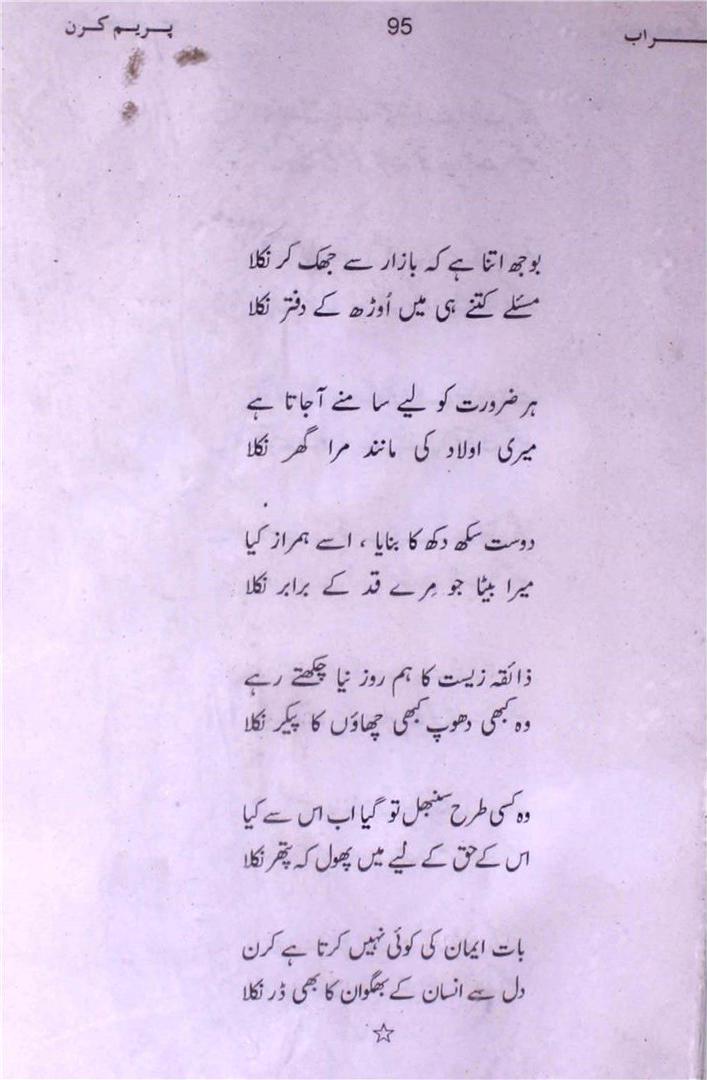 ـــراب 95 پریم کرن
بوجھ اتنا ہے کہ بازار سے جھک کر نکلا
مسئلے کتنے ہی میں اُوڑھ کے دفتر نکلا
ہر ضرورت کو لیے سامنے آجاتا ہے
میری اولاد کی مانند مرا گھر نکلا
دوست سکھ دکھ کا بنایا ، اسے ہمراز کیا
میرا بیٹا جو مِرے قد کے برابر نکلا
ذائقہ زیست کا ہم روز نیا چکھتے رہے
وہ کبھی دھوپ کبھی چھاؤں کا پیکر نکلا
وہ کسی طرح سنبھل تو گیا اب اس سے کیا
اس کے حق کے لیے میں پھول کہ پتھر نکلا
بات ایمان کی کوئی نہیں کرتا ہے کرن
دل سے انسان کے بھگوان کا بھی ڈر نکلا